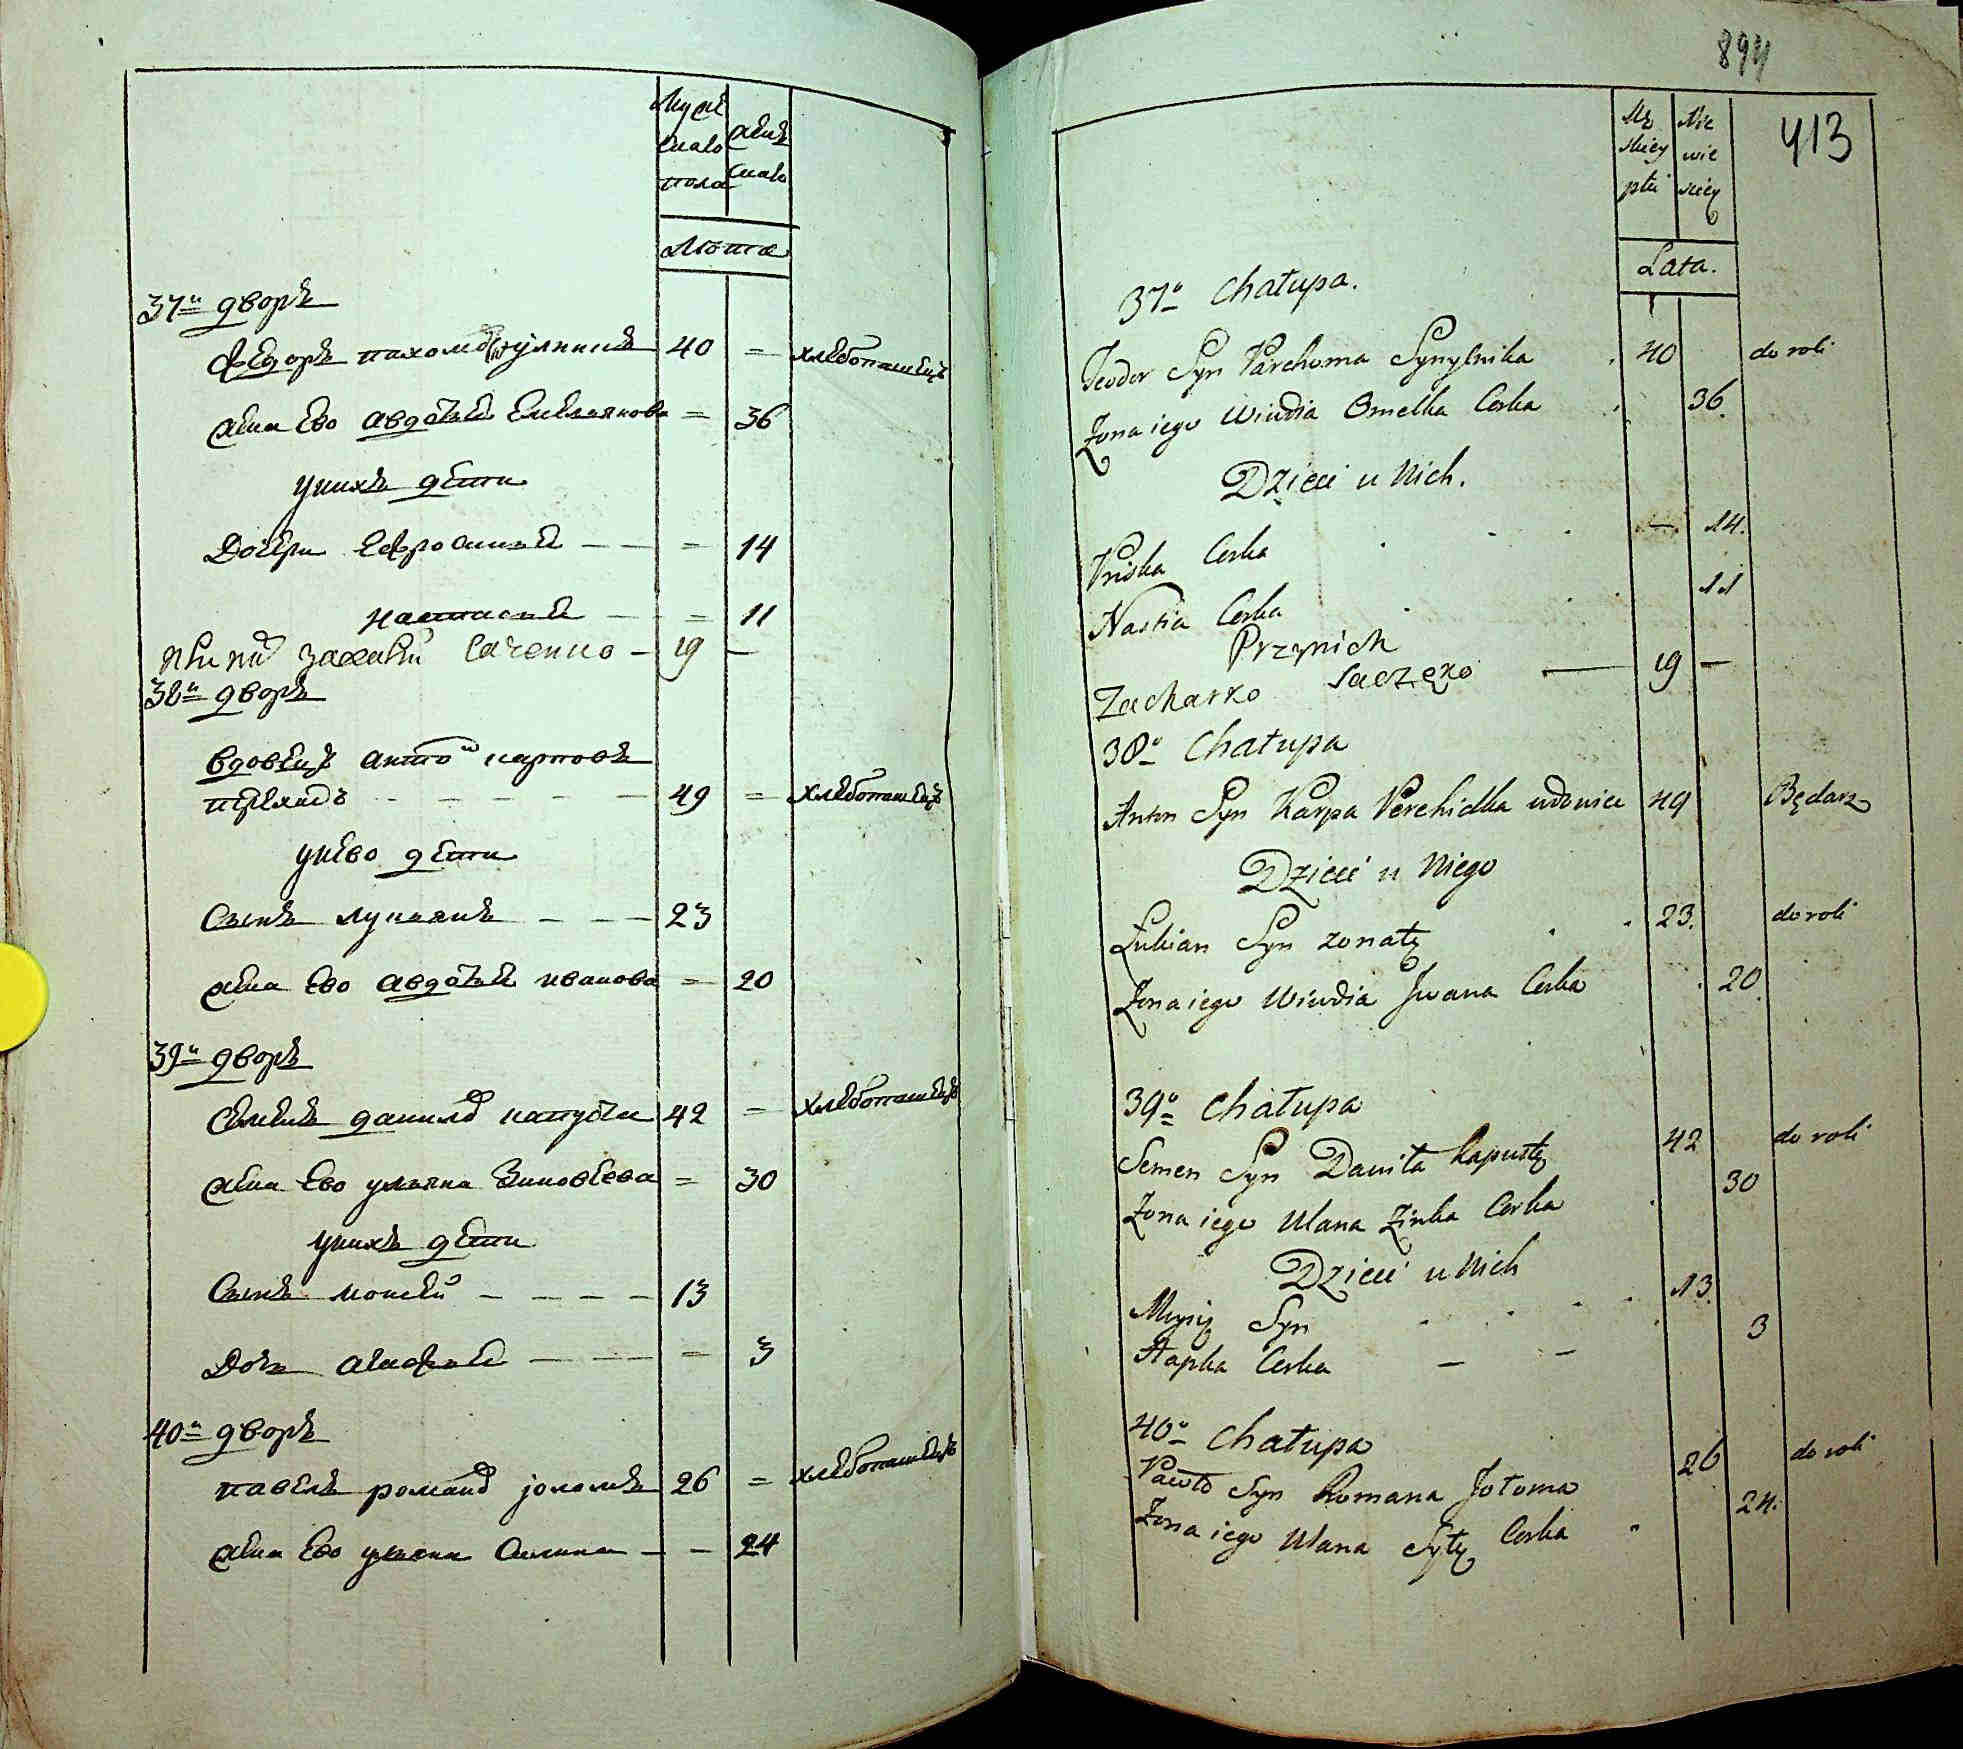 Муже
скаго
пола
женъ
скаго
Лѣта
37й дворъ
Федоръ пахомовъ 40 = хлебопашецъ
жена Ево авдотья Емельянова = 36
унихъ дети
Дочери Ефросинья — — = 14
настасья — = 11
при нихъ захарий Саченко — 19 —
38й дворъ
вдовецъ антонъ карповъ
— — — — — 49 = хлебопашецъ
унево дети
Сынъ лукьянъ — — — 23
жена Ево авдотья иванова = 20
39й дворъ
Семенъ данилов капуста 42 = хлебопашецъ
жена Ево ульяна Зиновьева = 30
унихъ дети
Сынъ моисей — — — — 13
Дочь агафья — — — = 3
40й дворъ
павелъ романов 26 = хлебопашецъ
жена Ево ульяна — — 24
894
413
Mę
skiey
płci
Nie
wie
sciey
Lata.
37o Chałupa.
Teodor Syn Parchoma Synylnika 40 do roli
Zona iego Wiwdia Omelka Corka 36.
Dzieci u Nich.
Priska Corka — 14.
Nastia Corka 11
Przynich
Zacharko Saczęko — 19 —
38o Chałupa
Anton Syn Karpa Perchidka wdowiec 49 Będarz
Dzieci u Niego
Łukian Syn zonaty 23. do roli
Zona iego Wiwdia Jwana Corka 20
39o Chałupa
Semen Syn Daniła Kapusty 42 do roli
Zona iego Ulana Zinka Corka 30
Dzieci u Nich
Mysiy Syn 13.
Hapka Corka — — 3
40o Chałupa
Pawło Syn Romana Jołoma 26 do roli
Zona iego Ulana Syty Corka 24.